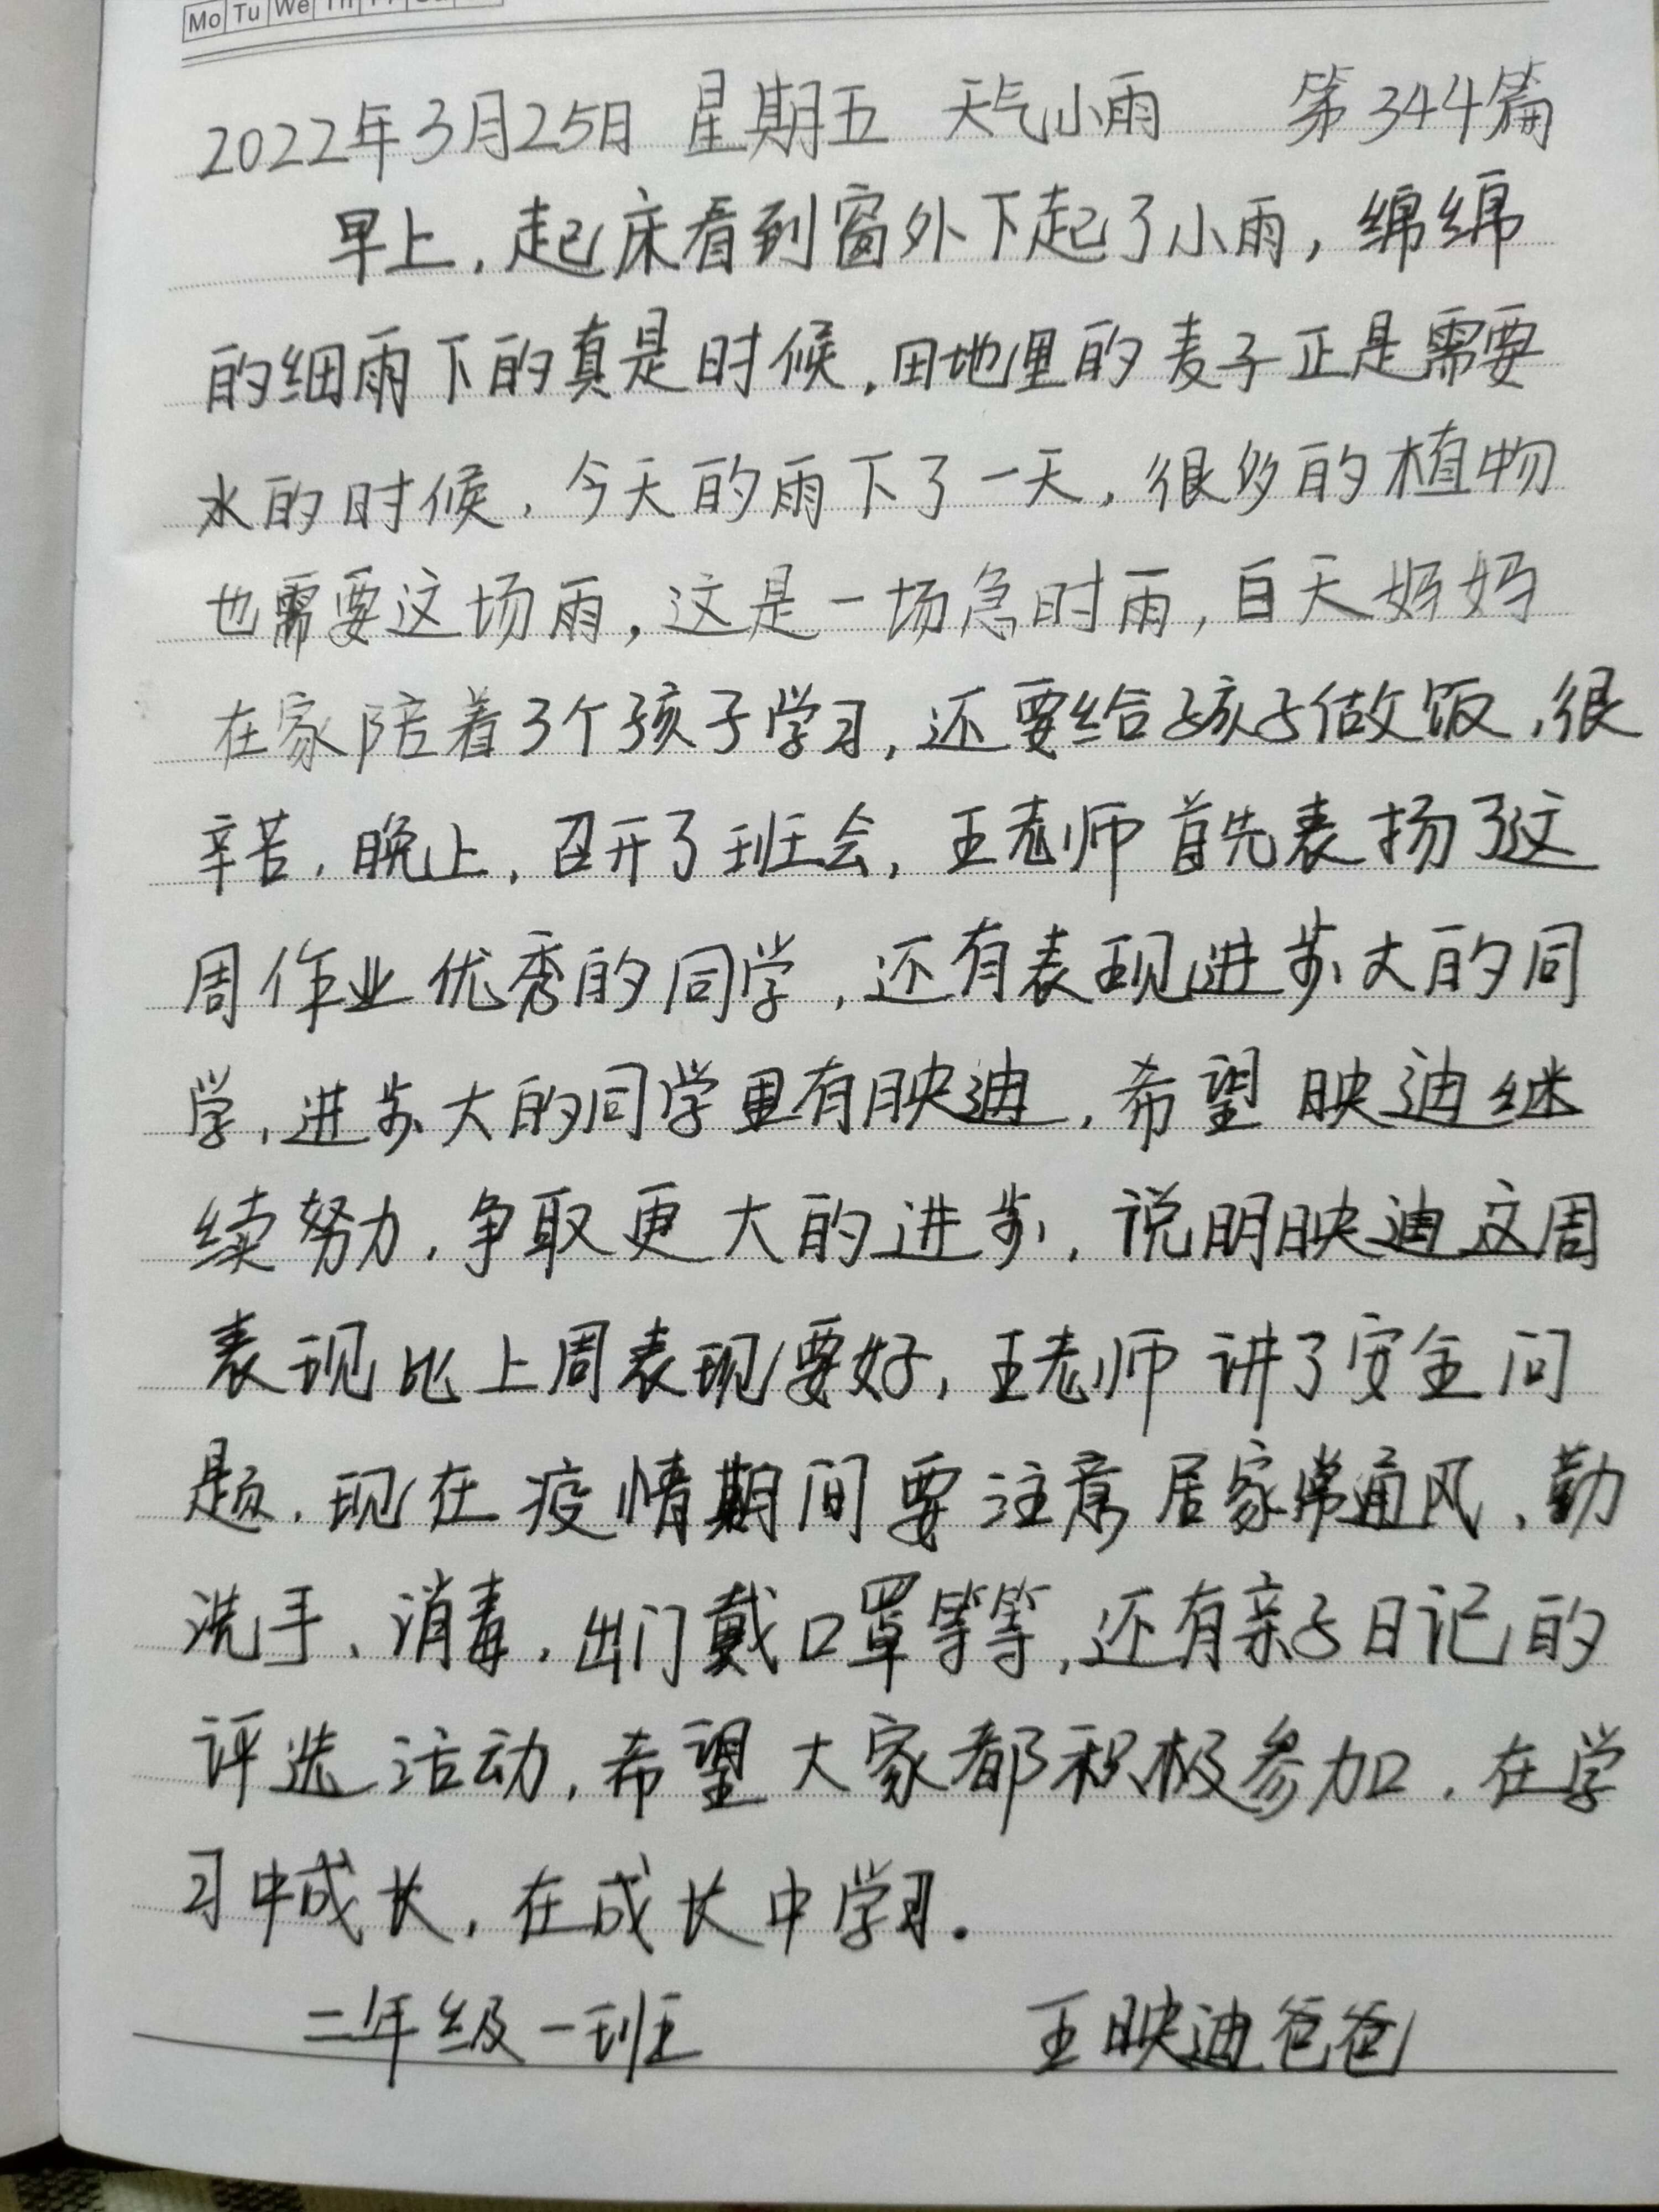 Mo Tu We Th
2022年3月25日 星期五 天气小雨 第344篇
早上，起床看到窗外下起了小雨，绵绵
的细雨下的真是时候，田地里的麦子正是需要
水的时候，今天的雨下了一天，很多的植物
也需要这场雨，这是一场急时雨，白天妈妈
在家陪着3个孩子学习，还要给孩子做饭，很
辛苦，晚上，召开了班会，王老师首先表扬了这
周作业优秀的同学，还有表现进步大的同
学，进步大的同学里有映迪，希望映迪继
续努力，争取更大的进步，说明映迪这周
表现比上周表现要好，王老师讲了安全问
题，现在疫情期间要注意居家常通风、勤
洗手、消毒，出门戴口罩等等，还有亲子日记的
评选活动，希望大家都积极参加，在学
习中成长，在成长中学习。
二年级一班 王映迪爸爸